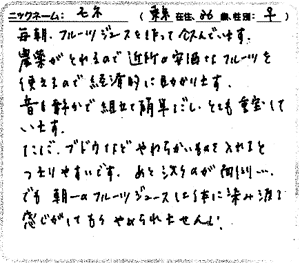 ニックネーム： セネ （東京 在住、26歳、性別：女）
毎朝、フルーツジュースを作って飲んでいます。
農薬がとれるので近所の安価なフルーツを
使えるので経済的に助かります。
音も静かで組立も簡単だし、とても重宝して
います。
ただ、ブドウなどやわらかいものを入れると
つまりやすいです。あと洗うのが面倒…
でも朝一のフルーツジュースは体に染み渡る
感じがしてもうやめられません！